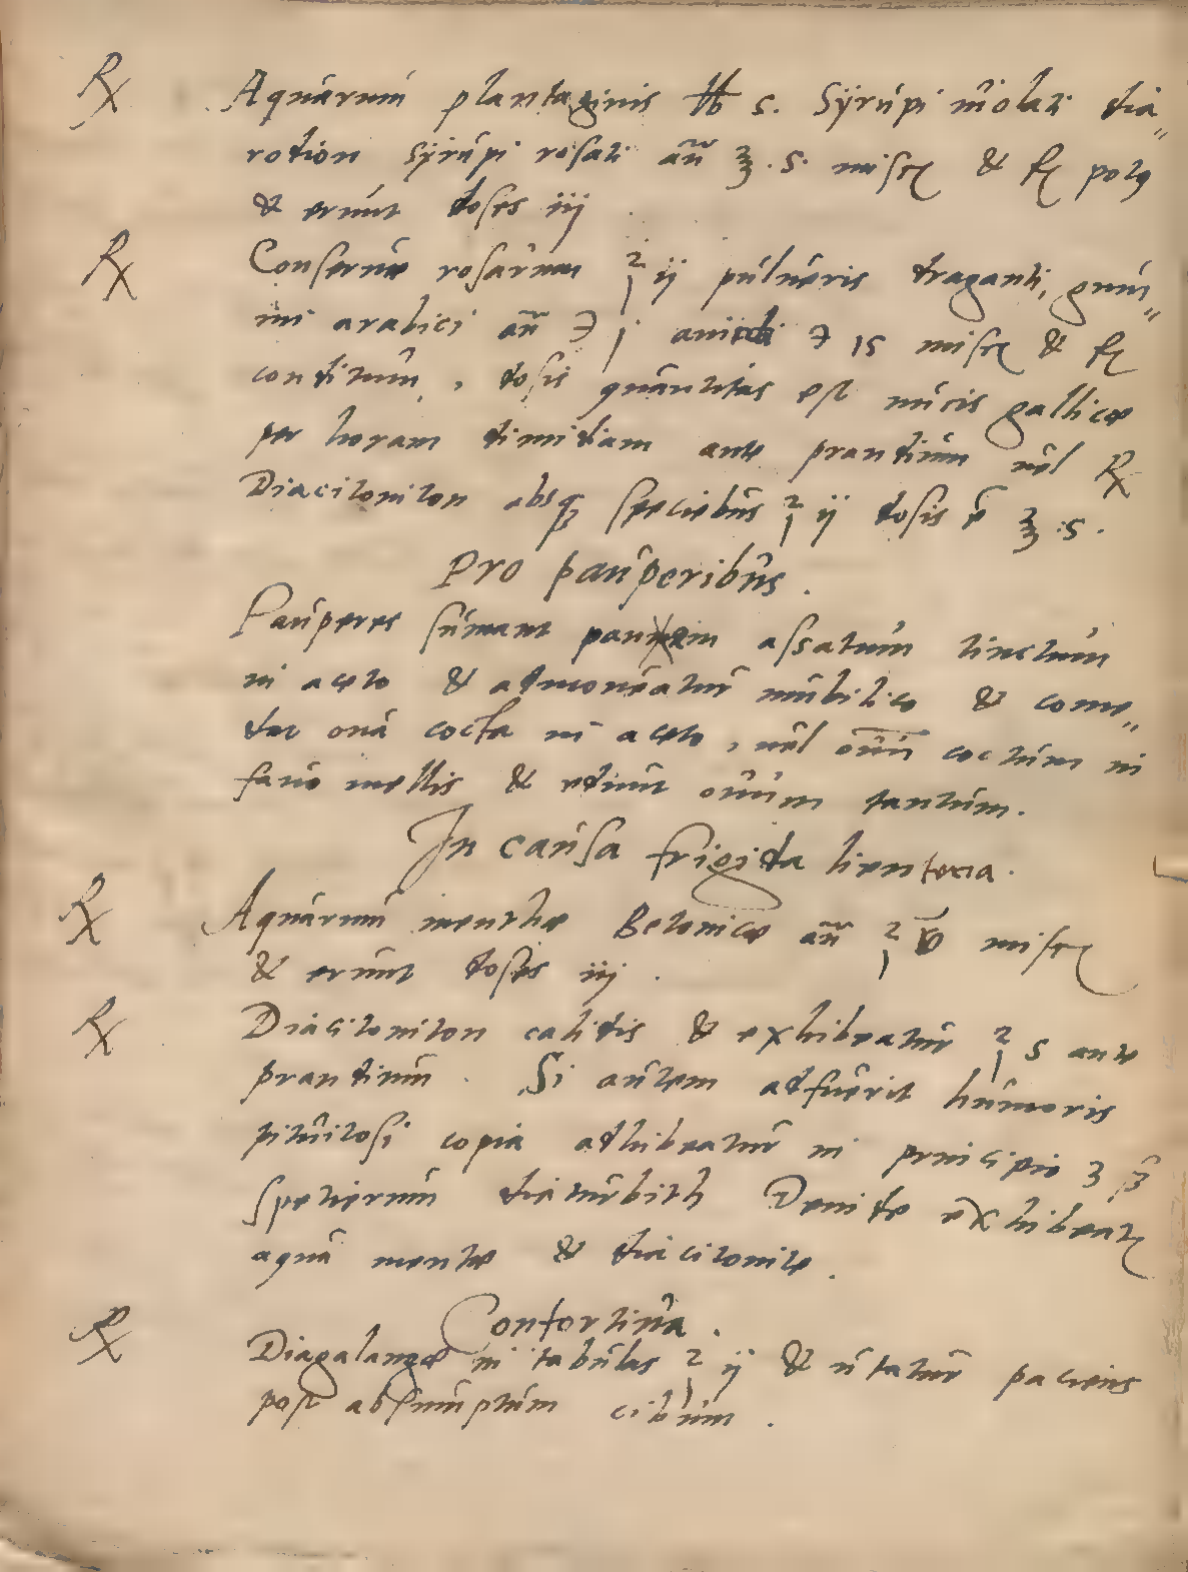 ℞ Aquarum plantaginis ℔ s. Syrupi violati dia„
rodion syrupi rosati añ ʒ. s. misce & f potus
& erunt doses iij
℞ Conservæ rosarum ℥ ij pulveris draganti, gum„
mi arabici añ ℈ j ℈ is misce & f
conditum, dosis quantitas est nucis gallicæ
per horam dimidiam ante prandium vel ℞
Diacitoniton absq speciebus ℥ ij dosis ē ʒ .s.
Pro pauperibus.
Pauperes sumant panem assatum tinctum
in aceto & admoveatur umbilico & come„
dat ova cocta in aceto, vel ovum coctum in
favo mellis & edant ovum tantum.
In causa frigida lienteria.
℞ Aquarum menthæ Betonicæ añ ℥ misce
& erunt doses iij.
℞ Diacitoniton calidis & exhibeatur ℥ s ante
prandium. Si autem adfuerit humoris
pituitosi copia adhibeatur in principio ʒ ß
spetierum diaturbith Deinde exhibeat
aqua mentæ & diacitonite.
Confortiva.
℞ Diagalangæ in tabulas ℥ ij & utatur paciens
post absumptum cibum.